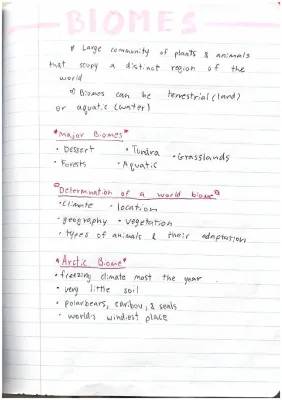 BIOMES
Large community of plants & animals
that scupy a distinct region of the
world
Biomes can be terrestrial (land)
or aquatic (water)
"Major Biomes"
• Dessert • Tundra • Grasslands
• Forests • Aquatic
"Determination of a world biome"
• Climate • location
• geography • vegetation
• types of animals & their adaptation
"Arctic Biome"
• freezing climate most the year
• very little soil
• polarbears, caribou, & seals
• worlds windiest place